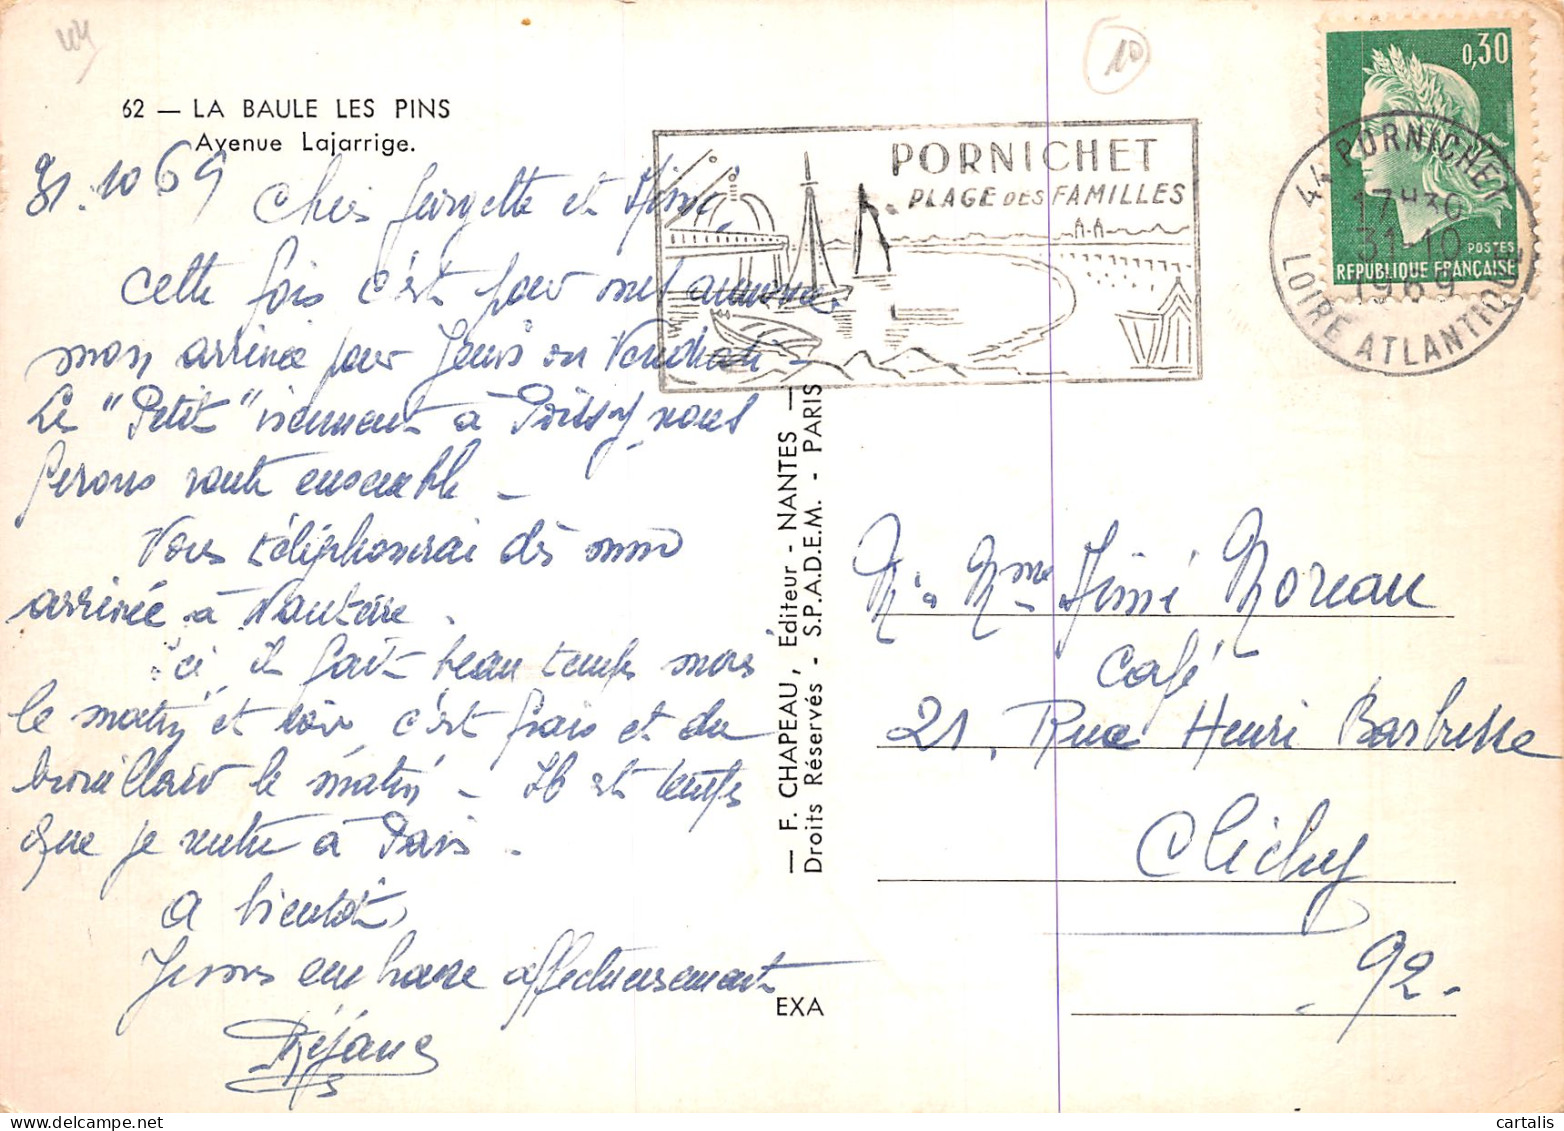 44
10
62 — LA BAULE LES PINS
Avenue Lajarrige.
31.10 69
Chers Georgette et Mimi,
cette fois c'est pour vous annoncer
mon arrivée pour Jeudi ou Vendredi —
Le "Petit" viennent à Poissy nous
ferons route ensemble —
Vous téléphonerai dès mon
arrivée à Nanterre.
Ici il fait beau temps mais
le matin et soir c'est frais et du
brouillard le matin — Il est temps
que je rentre à Paris.
A bientôt,
Je vous embrasse affectueusement
Réjane
— F. CHAPEAU, Editeur - NANTES —
Droits Réservés - S.P.A.D.E.M. - PARIS
EXA
PORNICHET
PLAGE DES FAMILLES
0,30
POSTES
REPUBLIQUE FRANÇAISE
44 PORNICHET
17H30
31-10
1969
LOIRE ATLANTIQUE
M. & Mme Mimi Moreau
Café
21, Rue Henri Barbusse
Clichy
- 92 -
cartalis
www.delcampe.net